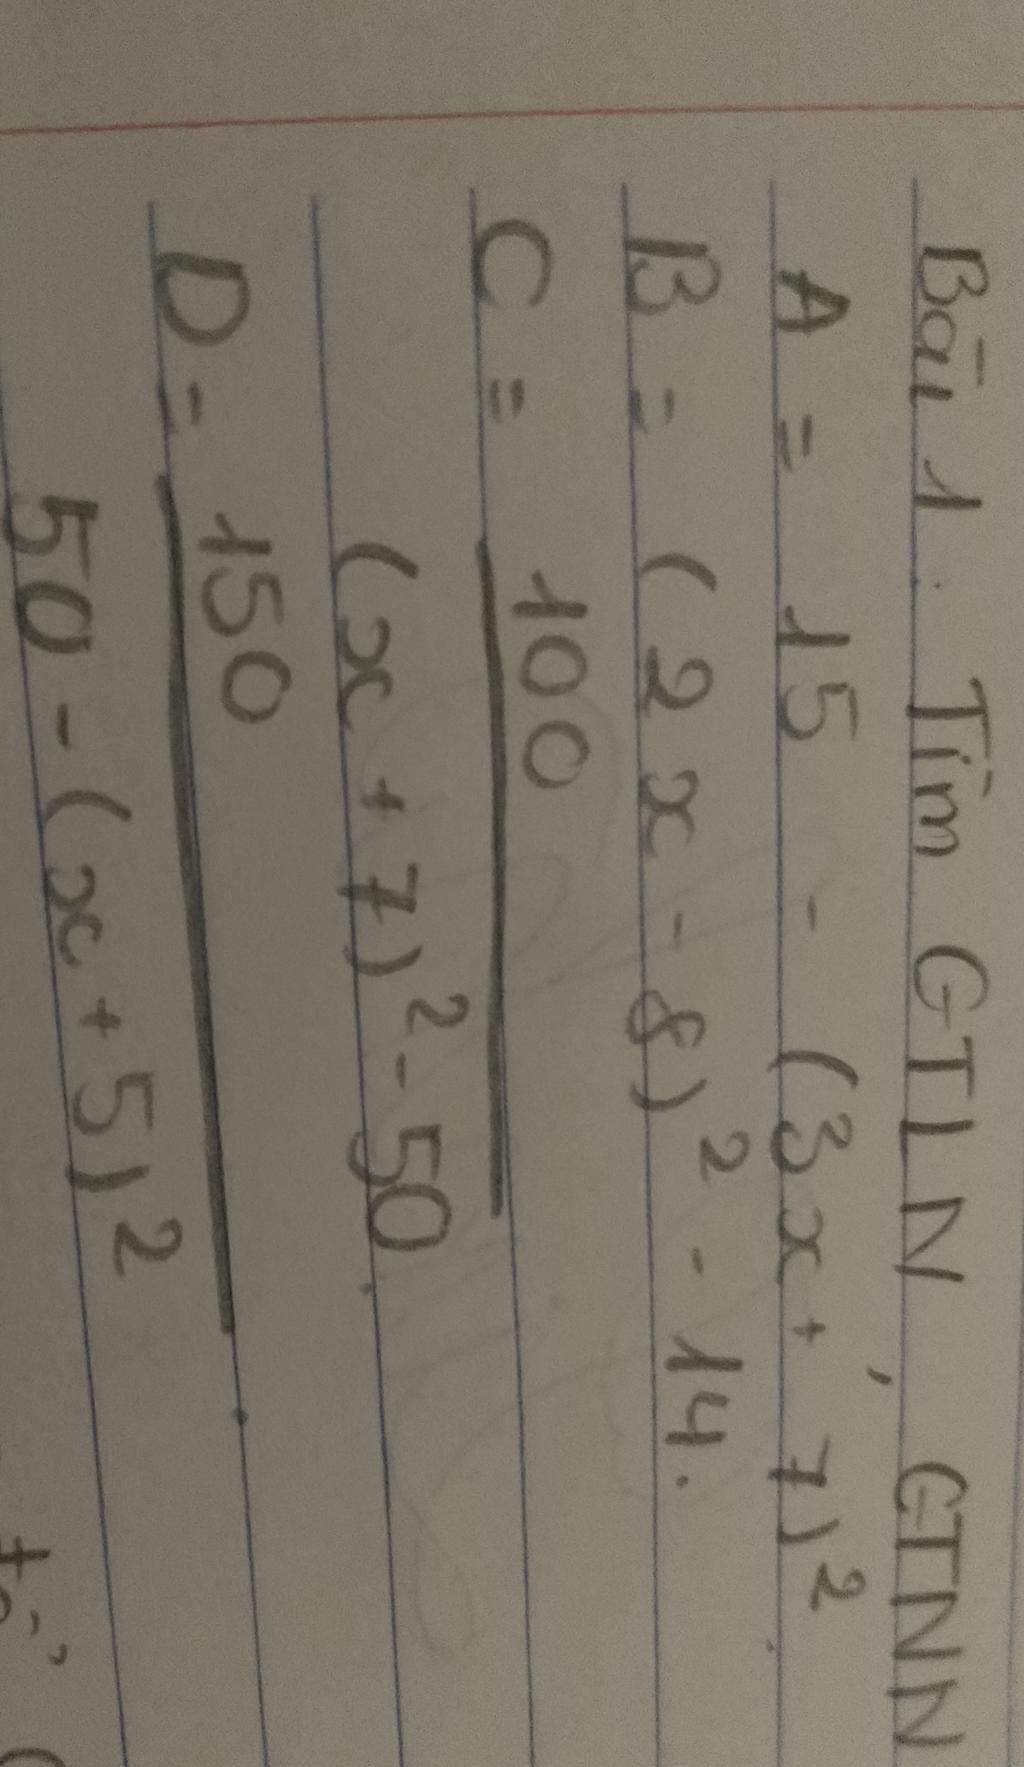 Bài 1. Tìm GTLN, GTNN
A = 15 - (3x + 7)²
B = (2x - 8)² - 14.
C = 100
(x + 7)² - 50
D = 150
50 - (x + 5)²